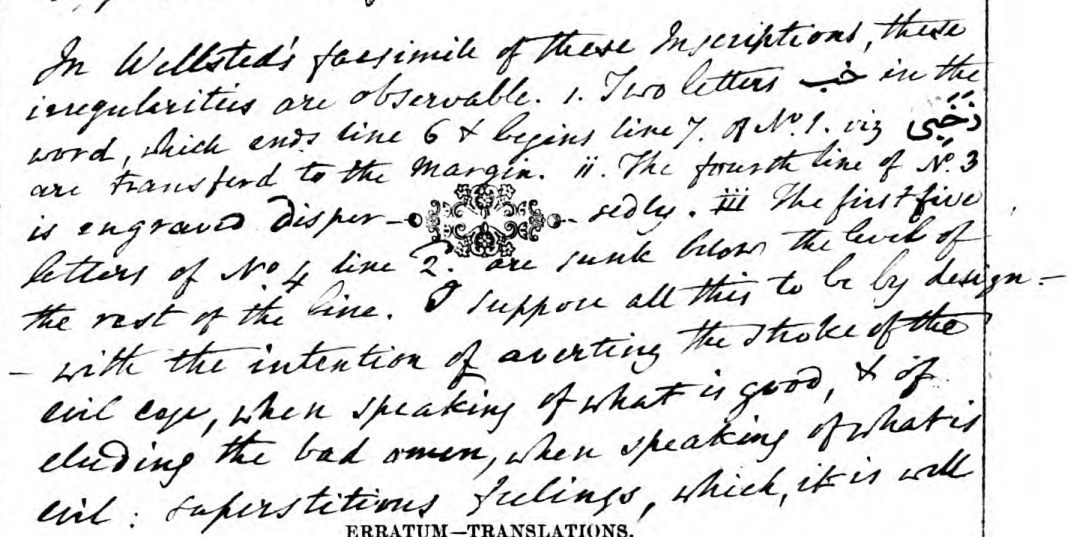 In Wellsted's facsimile of these Inscriptions, these
irregularities are observable. 1. Two letters خب in the
word, which ends line 6 & begins line 7. of No. 1. viz ذَخَبِي
are transferd to the margin. ii. The fourth line of No. 3
is engraved disper- sedly. iii The first five
letters of No. 4 line 2. are sunk below the level of
the rest of the line. I suppose all this to be by design -
- with the intention of averting the stroke of the
evil eye, when speaking of what is good, & of
eluding the bad omen, when speaking of what is
evil : superstitious feelings, which, it is well
ERRATUM—TRANSLATIONS.